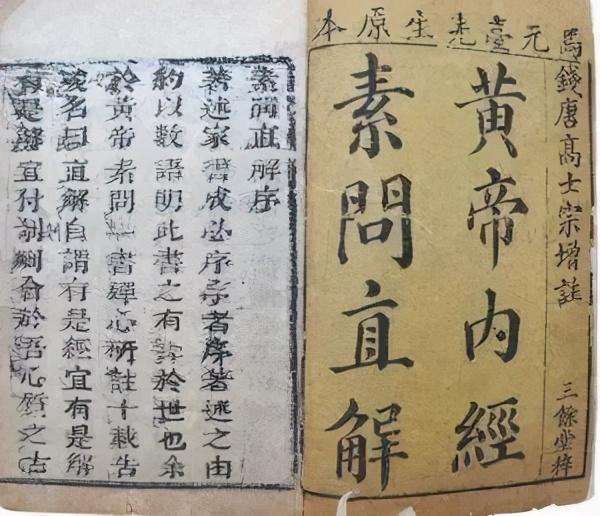 馬元臺先生原本
錢唐高士宗增註
黃帝內經
素問直解
三餘堂梓
素問直解序
著述家書成必序序者序著述之由
約以數語明此書之有裨於世也余
於黃帝素問一書殫心研註十載告
竣名曰直解自謂有是經宜有是解
有是解宜付剞劂於語心質之古